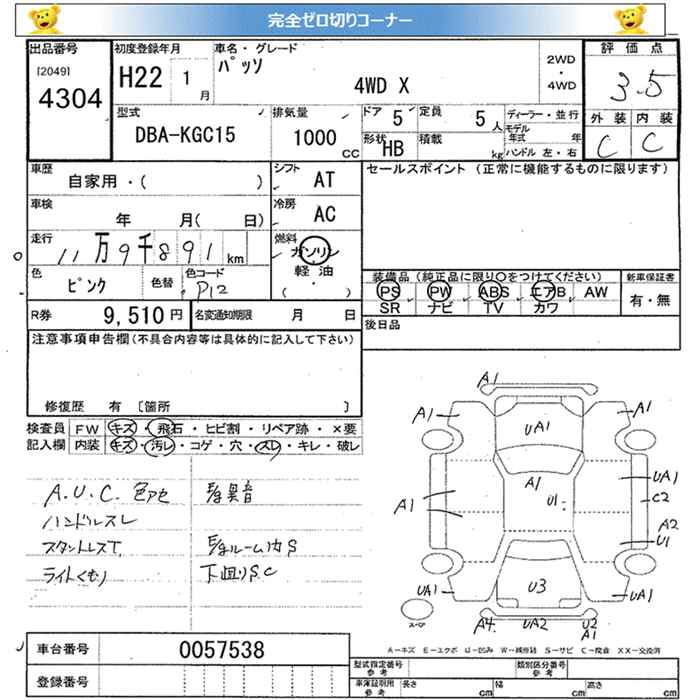 完全ゼロ切りコーナー
出品番号 [2049] 4304
初度登録年月 H22 1月
車名・グレード パッソ 4WD X
2WD・4WD
評価点 3.5
外装 C 内装 C
型式 DBA-KGC15
排気量 1000 CC
ドア 5 定員 5人
ディーラー・並行
形状 HB 積載 kg
モデル年式 年
ハンドル 左・右
車歴 自家用・( )
シフト AT
セールスポイント (正常に機能するものに限ります)
車検 年 月( 日)
冷房 AC
走行 11万9千891km
燃料 ガソリン・軽油・( )
色 ピンク 色替 色コード P12
装備品 (純正品に限り○をつけてください)
新車保証書 有・無
PS PW ABS エアB AW
SR ナビ TV カワ
R券 9,510円
名変通知期限 月 日
後日品
注意事項申告欄(不具合内容等は具体的に記入して下さい)
修復歴 有 〔箇所 〕
検査員記入欄
FW キズ・飛石・ヒビ割・リペア跡・×要
内装 キズ・汚レ・コゲ・穴・スレ・キレ・破レ
A.U.C. 色アセ
異音
ハンドルスレ
ルーム内S
ライトくもり
下廻りS C
A1
A1 A1
UA1
A1 UA1
U1 C2
A1 A2
U1
UA1 U3 UA1
スペア
A4 UA2 U2
A1
A−キズ E−エクボ U−凹み W−補修跡 S−サビ C−腐食 XX−交換済
車台番号 0057538
登録番号
型式指定番号 参考 類別区分番号 参考
車庫証明用 参考 長さ cm 幅 cm 高さ cm